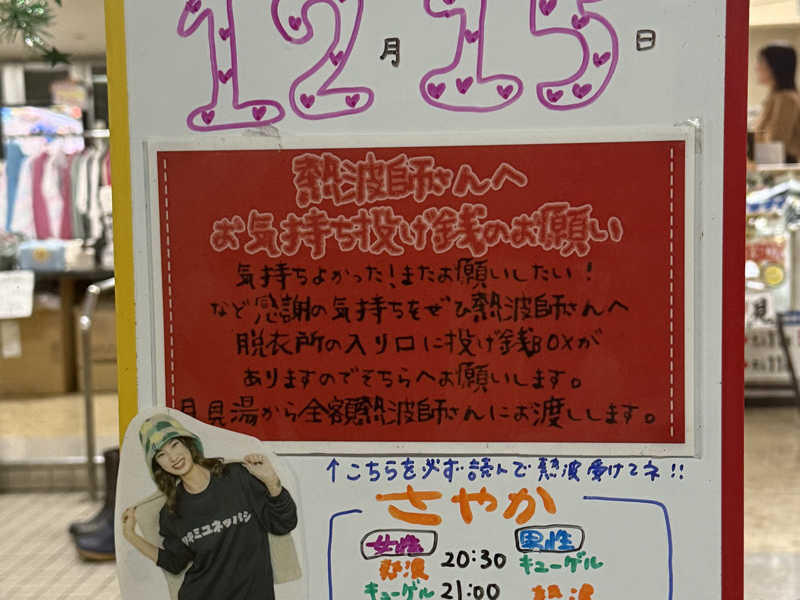 12月15日
熱波師さんへ
お気持ち投げ銭のお願い
気持ちよかった！またお願いしたい！
など感謝の気持ちをぜひ熱波師さんへ
脱衣所の入り口に投げ銭BOXが
ありますのでそちらへお願いします。
月見湯から全額熱波師さんにお渡しします。
↑こちらを必ず読んで熱波受けてネ!!
さやか
女性 20:30 男性
熱波 キューゲル
キューゲル 21:00 熱波